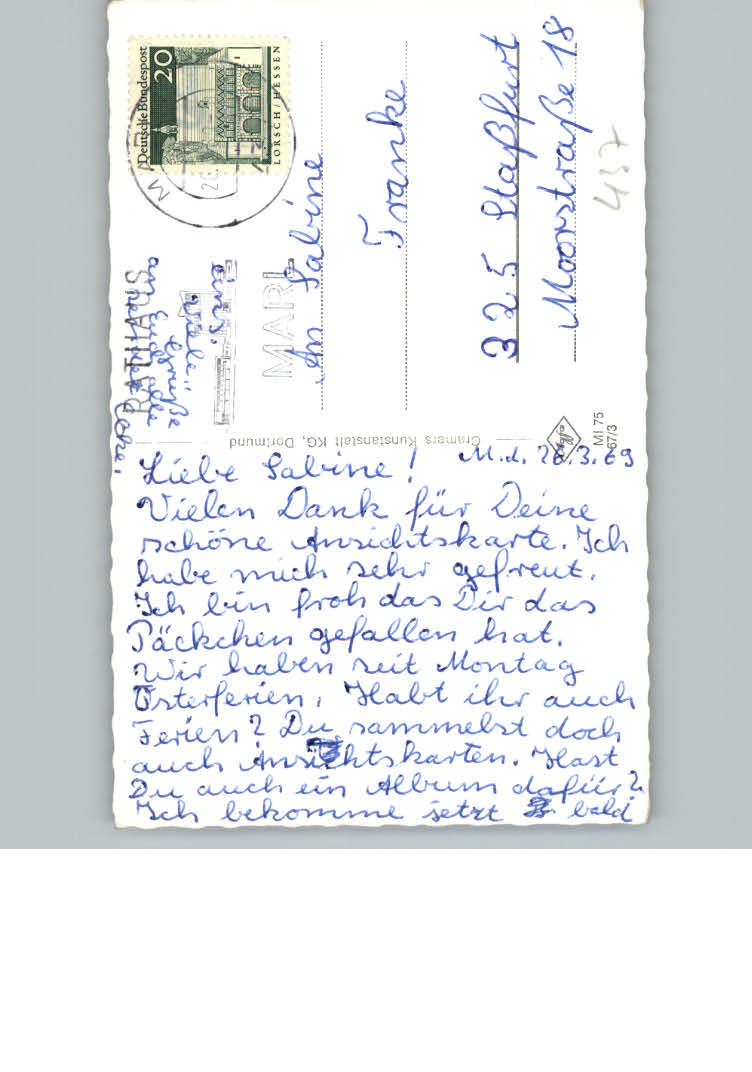 M.d. 26.3.69
Liebe Sabine!
Vielen Dank für Deine
schöne Ansichtskarte. Ich
habe mich sehr gefreut.
Ich bin froh das Dir das
Päckchen gefallen hat.
Wir haben seit Montag
Osterferien, Habt ihr auch
Ferien? Du sammelst doch
auch Ansichtskarten. Hast
Du auch ein Album dafür?
Ich bekomme jetzt bald
eins.
Viele
Grüße
an Euch alle
Heike
An Sabine
Franke
325 Staßfurt
Moorstraße 18
437
Deutsche Bundespost
20
LORSCH/HESSEN
MARL
RATHAUS
MARL
Cramers Kunstanstalt KG, Dortmund
Agfa
MI 75
67/3